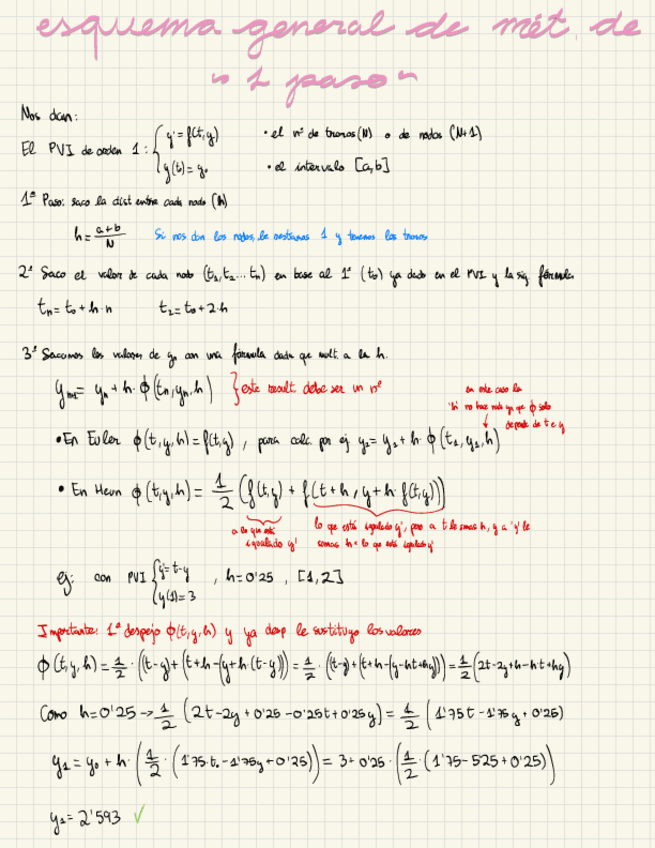 esquema general de mét. de
"1 paso"
Nos dan:
El PVI de orden 1: { y' = f(t,y) • el nº de tramos (N) o de nodos (N+1)
y(t₀) = y₀ • el intervalo [a,b]
1º Paso: saco la dist entre cada nodo (h)
h = a+b/N Si nos dan los nodos, le restamos 1 y tenemos los tramos
2º Saco el valor de cada nodo (t₁, t₂... tₙ) en base al 1º (t₀) ya dado en el PVI y la sig. fórmula
tₙ = t₀ + h·n t₂ = t₀ + 2·h
3º Sacamos los valores de yₙ con una fórmula dada que mult. a la h.
yₙ₊₁ = yₙ + h·ϕ(tₙ, yₙ, h) } este result. debe ser un nº
en este caso la
'h' no hace nada ya que ϕ solo
depende de t e y
• En Euler ϕ(t,y,h) = f(t,y), para calc. por ej y₂ = y₁ + h·ϕ(t₁, y₁, h)
• En Heun ϕ(t,y,h) = 1/2 (f(t,y) + f(t+h, y+h·f(t,y)))
a lo que está igualado y'
lo que está igualado y', pero a t le sumas h, y a 'y' le
sumas h · lo que está igualado y'
ej: con PVI { y' = t-y , h = 0'25 , [1,2]
y(1) = 3
Importante: 1º despejo ϕ(t,y,h) y ya desp le sustituyo los valores
ϕ(t,y,h) = 1/2 · ((t-y) + (t+h-(y+h·(t-y))) = 1/2 · ((t-y) + (t+h-(y-ht+hy)) = 1/2 (2t-2y+h-ht+hy)
Como h = 0'25 → 1/2 (2t-2y+0'25-0'25t+0'25y) = 1/2 (1'75t-1'75y+0'25)
y₁ = y₀ + h·(1/2 · (1'75·t₀-1'75y+0'25)) = 3 + 0'25·(1/2 · (1'75-525+0'25))
y₁ = 2'593 ✓